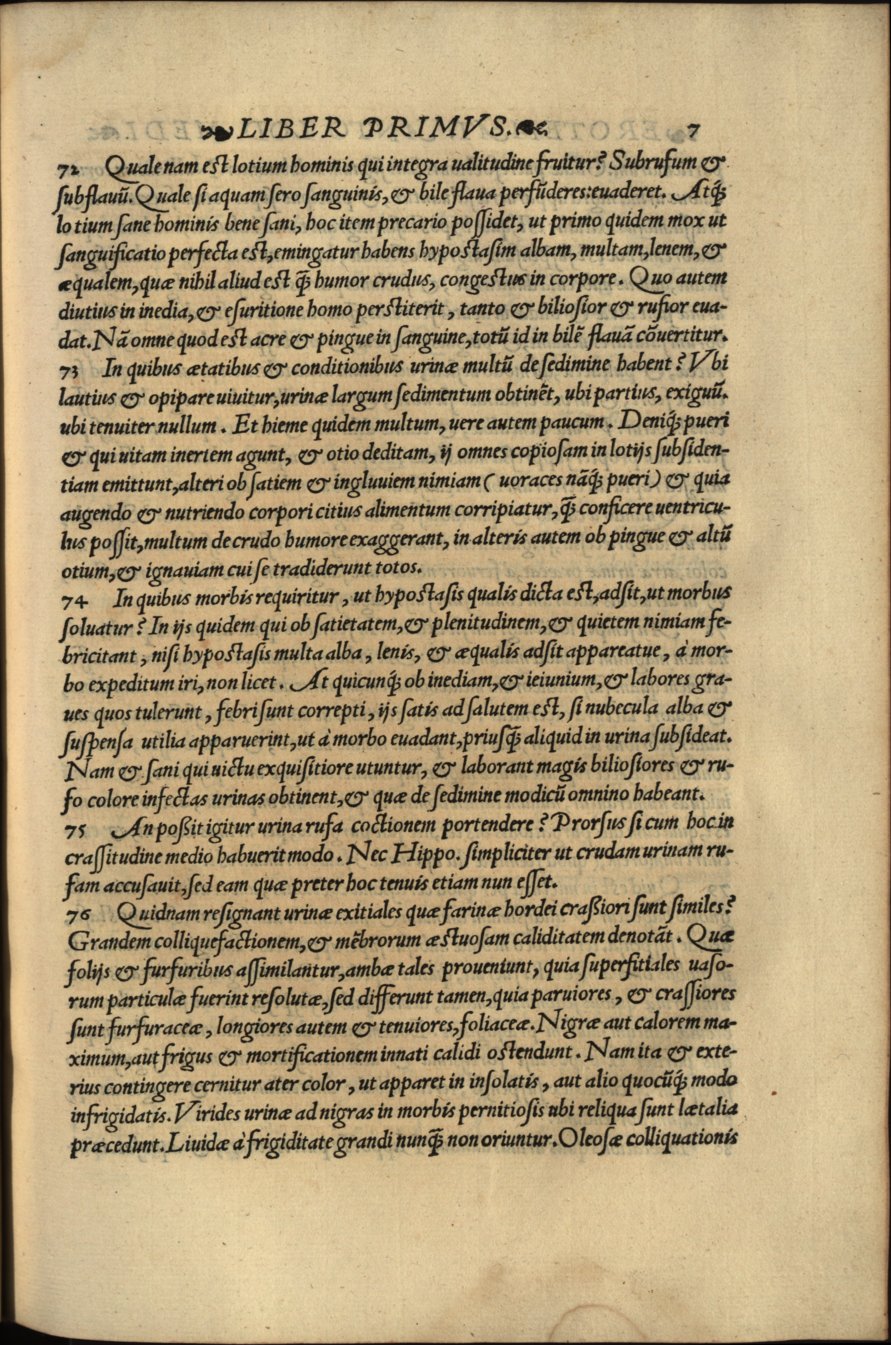 LIBER PRIMVS. 7
72 Quale nam est lotium hominis qui integra ualitudine fruitur? Subrufum &
subflauũ. Quale si aquam sero sanguinis, & bile flaua perfũderes: euaderet. Atq́ꝫ
lo tium sane hominis bene sani, hoc item precario possidet, ut primo quidem mox ut
sanguificatio perfecta est, emingatur habens hypostasim albam, multam, lenem, &
æqualem, quæ nihil aliud est q̃ꝫ humor crudus, congestus in corpore. Quo autem
diutius in inedia, & esuritione homo perstiterit, tanto & biliosior & rufior eua-
dat. Nã omne quod est acre & pingue in sanguine, totũ id in bilẽ flauã cõuertitur.
73 In quibus ætatibus & conditionibus urinæ multũ de sedimine habent? Vbi
lautius & opipare uiuitur, urinæ largum sedimentum obtinẽt, ubi partius, exiguũ.
ubi tenuiter nullum. Et hieme quidem multum, uere autem paucum. Deniq́ꝫ pueri
& qui uitam inertem agunt, & otio deditam, ij omnes copiosam in lotijs subsiden-
tiam emittunt, alteri ob satiem & ingluuiem nimiam ( uoraces nãq́ꝫ pueri ) & quia
augendo & nutriendo corpori citius alimentum corripiatur, q̃ꝫ conficere uentricu-
lus possit, multum de crudo humore exaggerant, in alteris autem ob pingue & altũ
otium, & ignauiam cui se tradiderunt totos.
74 In quibus morbis requiritur, ut hypostasis qualis dicta est, adsit, ut morbus
soluatur? In ijs quidem qui ob satietatem, & plenitudinem, & quietem nimiam fe-
bricitant, nisi hypostasis multa alba, lenis, & æqualis adsit appareatue, à mor-
bo expeditum iri, non licet. At quicunq́ꝫ ob inediam, & ieiunium, & labores gra-
ues quos tulerunt, febri sunt correpti, ijs satis ad salutem est, si nubecula alba &
suspensa utilia apparuerint, ut à morbo euadant, priusq̃ꝫ aliquid in urina subsideat.
Nam & sani qui uictu exquisitiore utuntur, & laborant magis biliosiores & ru-
fo colore infectas urinas obtinent, & quæ de sedimine modicũ omnino habeant.
75 An poßit igitur urina rufa coctionem portendere? Prorsus si cum hoc in
crassitudine medio habuerit modo. Nec Hippo. simpliciter ut crudam urinam ru-
fam accusauit, sed eam quæ preter hoc tenuis etiam nun esset.
76 Quidnam resignant urinæ exitiales quæ farinæ hordei craßiori sunt similes?
Grandem colliquefactionem, & mẽbrorum æstuosam caliditatem denotãt. Quæ
folijs & furfuribus assimilantur, ambæ tales proueniunt, quia superfitiales uaso-
rum particulæ fuerint resolutæ, sed differunt tamen, quia paruiores, & crassiores
sunt furfuraceæ, longiores autem & tenuiores, foliaceæ. Nigræ aut calorem ma-
ximum, aut frigus & mortificationem innati calidi ostendunt. Nam ita & exte-
rius contingere cernitur ater color, ut apparet in insolatis, aut alio quocũq́ꝫ modo
infrigidatis. Virides urinæ ad nigras in morbis pernitiosis ubi reliqua sunt lætalia
præcedunt. Liuidæ à frigiditate grandi nunq̃ꝫ non oriuntur. Oleosæ colliquationis